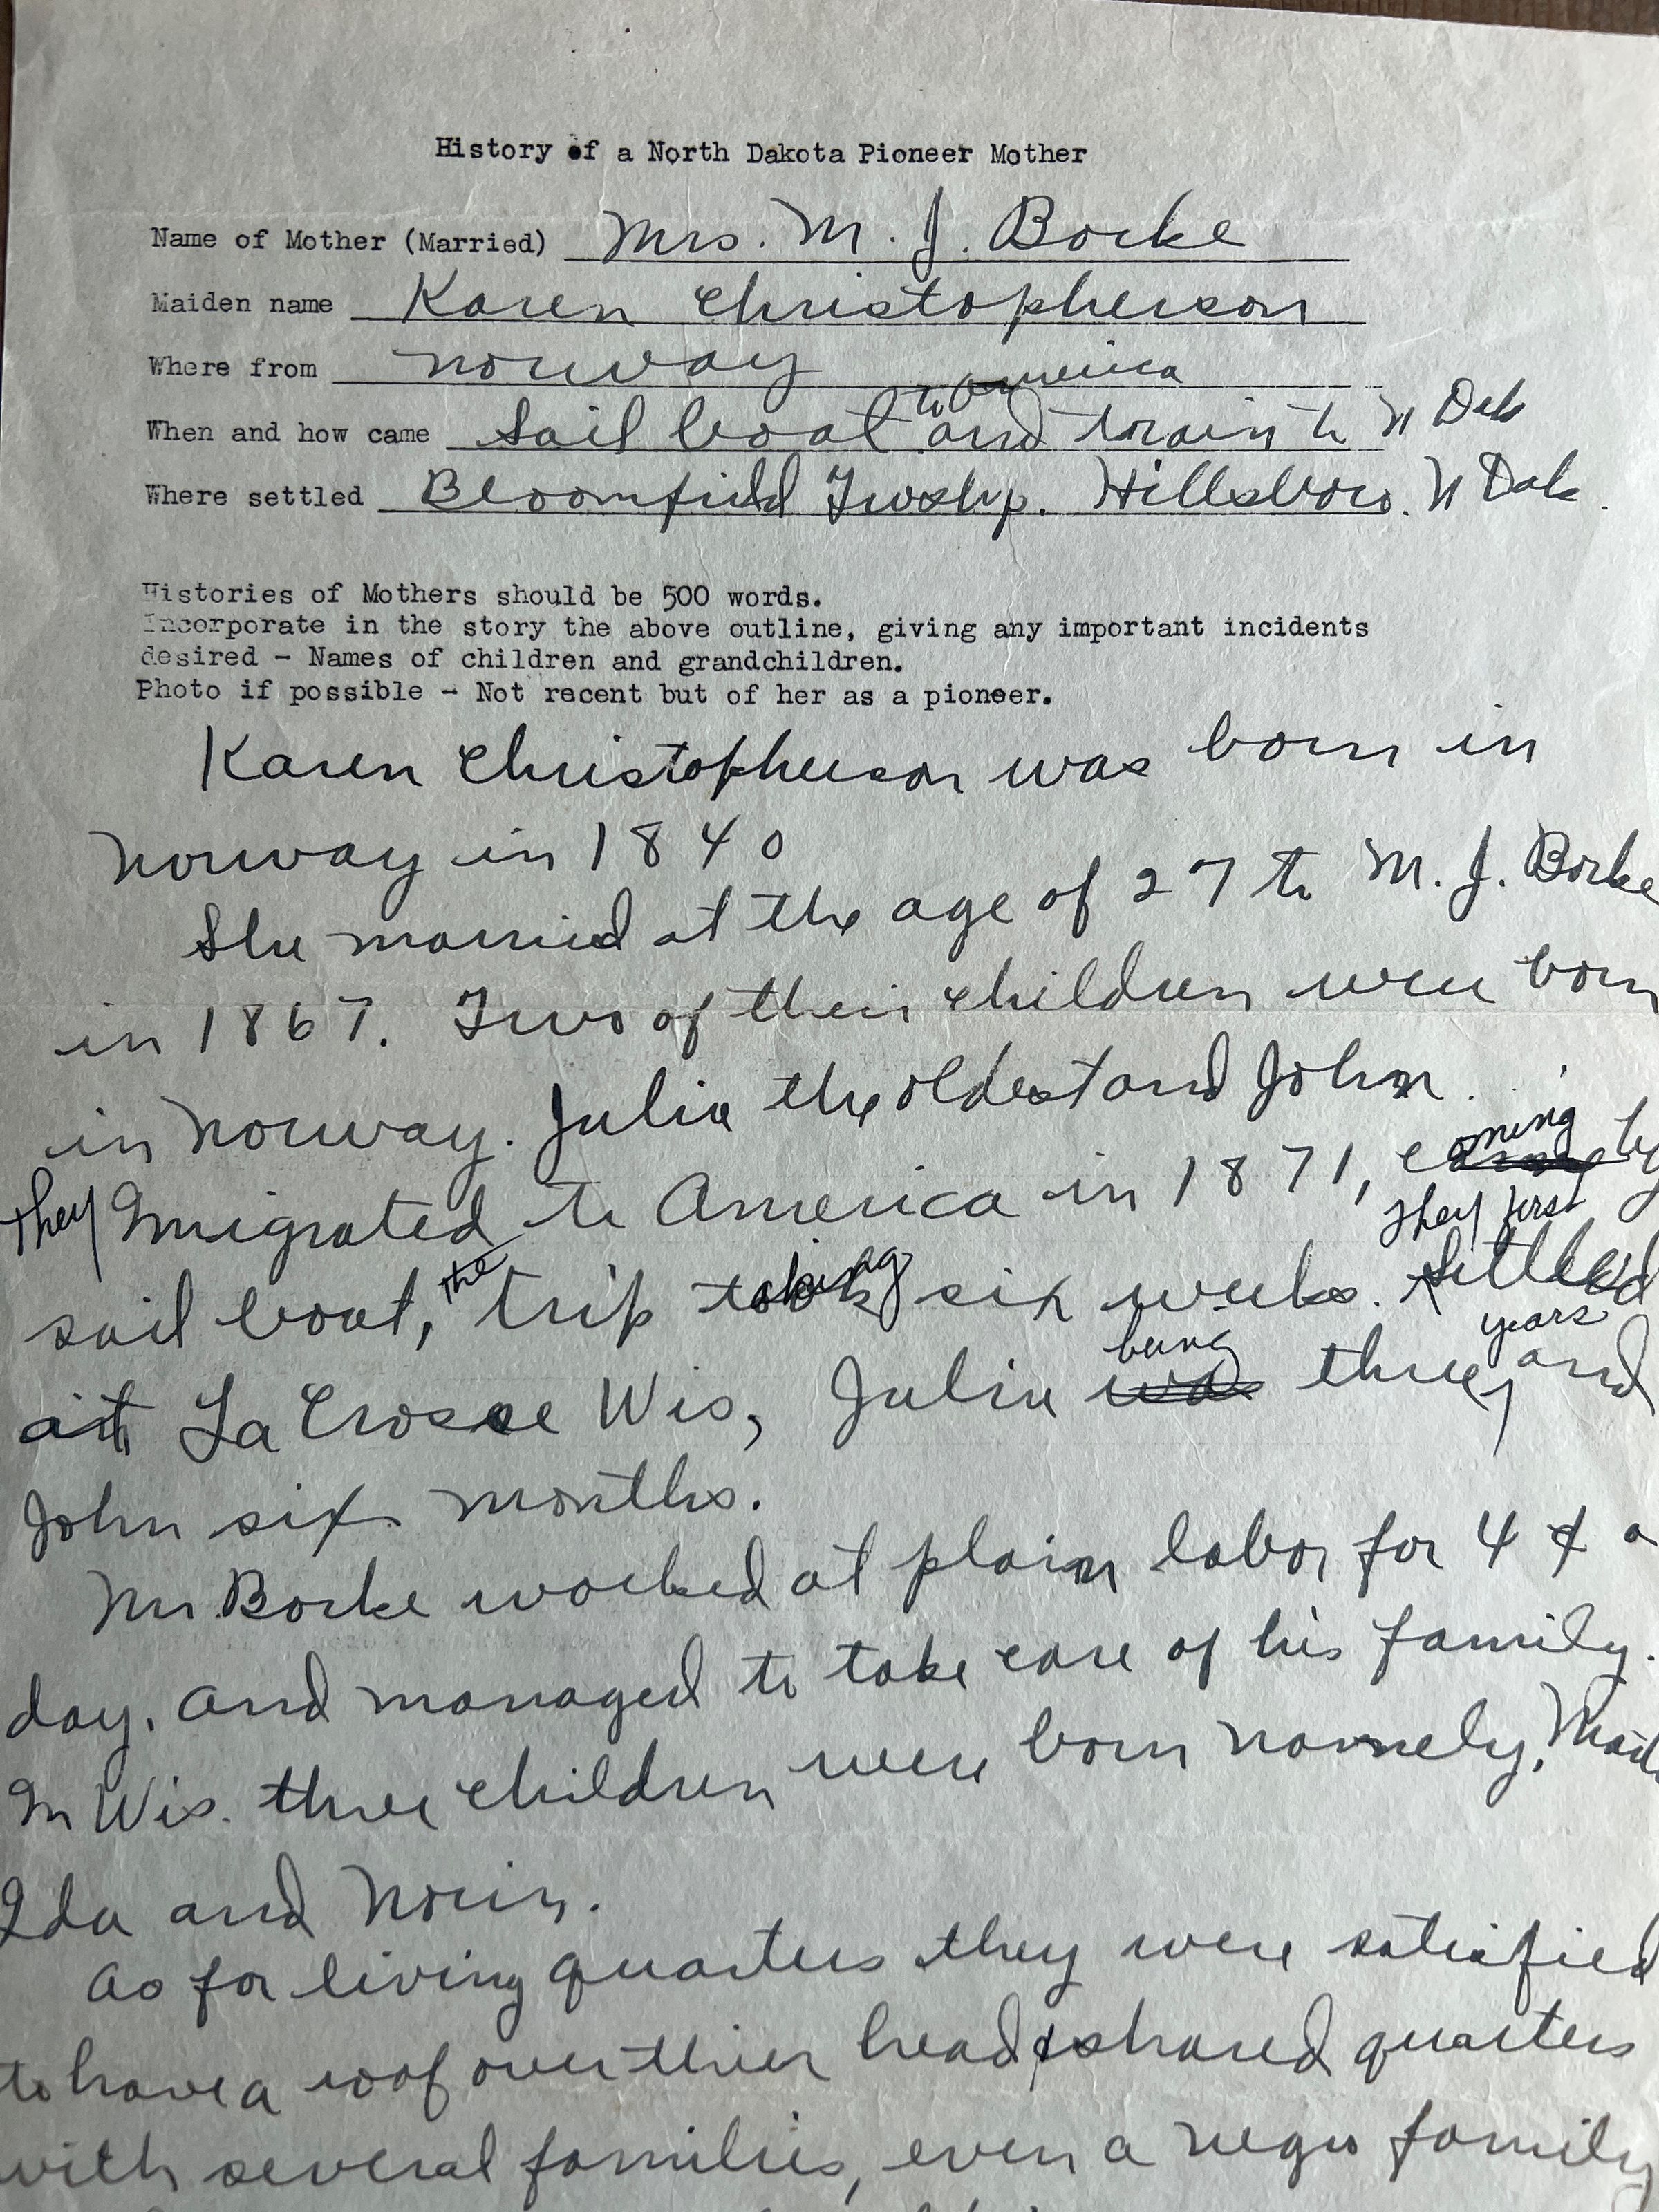 History of a North Dakota Pioneer Mother
Name of Mother (Married) Mrs. M. J. Borke
Maiden name Karen Christopherson
Where from Norway
When and how came Sail boat to America and train to N Dak
Where settled Bloomfield Twshp. Hillsboro. N Dak.
Histories of Mothers should be 500 words.
Incorporate in the story the above outline, giving any important incidents
desired - Names of children and grandchildren.
Photo if possible - Not recent but of her as a pioneer.
Karen Christopherson was born in
Norway in 1840
She married at the age of 27 to M. J. Borke
in 1867. Two of their children were born
in Norway. Julia the oldest and John.
They Imigrated to America in 1871, coming by
sail boat, the trip taking six weeks. They first settled
at La Crosse Wis, Julia being three years, and
John six months.
Mr. Borke worked at plain labor for 4 ¢ a
day. and managed to take care of his family.
In Wis. three children were born namely,
Ida and Norin.
As for living quarters they were satisfied
to have a roof over thier head & shared quarters
with several families, even a negro family